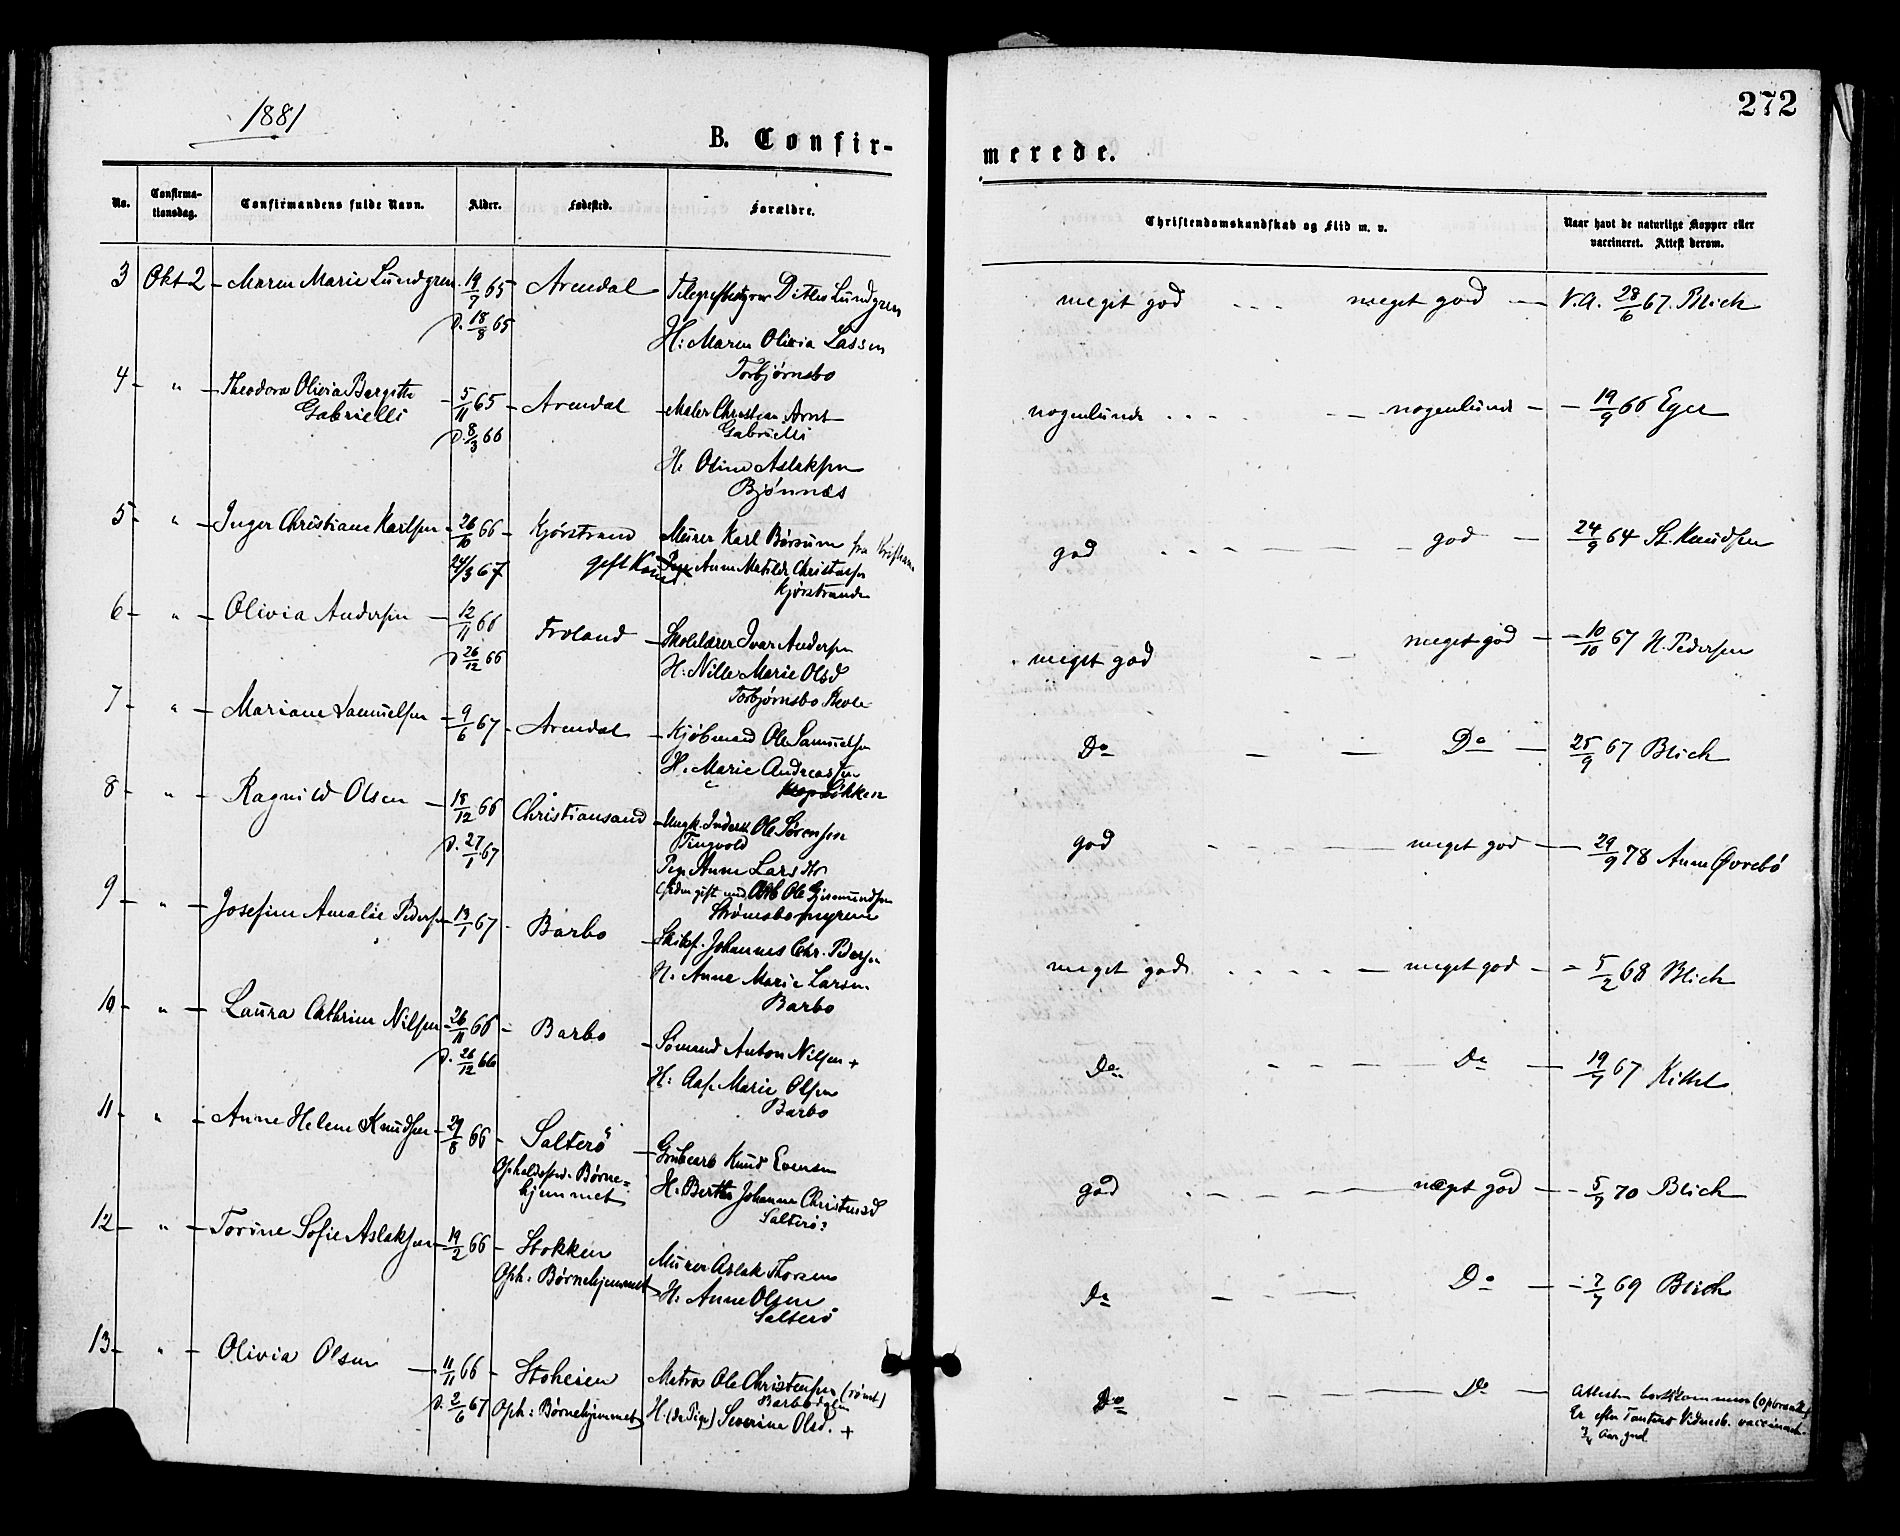 1881
272
B. Confir-
merede.
No.
Confirma-
tionsdag.
Confirmandens fulde Navn.
Alder.
Fødested.
Forældre.
Christendomskundskab og Flid m. v.
Naar havt de naturlige Kopper eller
vaccineret. Attest derom.
3 Okt 2 - Maren Marie Lundgren 19/7 65 Arendal Ditlev Lundgren meget god meget god V.A. 28/6 67. Blich
D. 18/8 65 H: Maren Olivia Lassen
Torbjørnsbo
4 - " - Theodora Olivia Bergitte 5/11 65 - Arendal - Maler Christian Arnt nogenlunde nogenlunde - 19/9 66 Eger
Gabrielli Gabrielli
D. 8/3 66 H: Oline Aslaksen
Bjønnæs
5 - " - Inger Christiane Karlsen 26/10 66 - Kjørstrand Murer Karl fra god god 24/9 64 St. Knudsen
24/3 67 gift Anne Matilde Christensen
Kjørstrand
6 - " - Olivia Andersen 12/11 66 Froland - Skolelærer Ivar Andersen meget god meget god - 10/10 67 N. Pedersen
D. 26/12 66 H. Nille Marie Olsd
Torbjørnsbo Skole
7 - " - Mariane Samuelsen - 9/6 67 - Arendal - Kjøbmand Ole Samuelsen Do Do 25/9 67 Blich
H. Marie Andreassen
8 " - Ragnild Olsen - 18/12 66 Christiansand - Ungk. Ole Sørensen god meget god 29/9 78 Anne Øvrebø
D. 27/1 67 Tingvold
Pige Anne Larsdtr
gift med Ole Gjermundsen
Strømsbomyrene
9 - " - Josefine Amalie Pedersen 13/1 67 - Barbo - Skibsf. Johannes Chr. Pedersen meget god meget god - 5/2 68 Blich
H. Anne Marie Larsen
Barbo
10 - " - Laura Cathrine Nilsen - 26/11 66 - Barbo - Sømand Anton Nilsen + Do Do 19/7 67 Kittel
D. 26/12 66 H: Marie Olsen
Barbo
11 - " - Anne Helene Knudsen - 29/8 66 - Salterø - Grubearb Knud Evensen god meget god - 5/7 70 Blich
Opholdssted. Børne= H. Berthe Johanne Christensd
hjemmet Salterø
12 - " - Torine Sofie Aslaksen - 19/2 66 - Stokken Murer Aslak Thorsen Do Do - 7/7 69 Blich
Oph: Børnehjemmet H. Anne Olsen
Salterø
13 - " - Olivia Olsen - 11/11 66 - Stoheien Matros Ole Christensen (rømt) Do Do Attesten bortkommen
D. 2/6 67 Oph: Børnehjemmet H. (d: Pige) Severine Olsd. + Er efter Tantens Vidnesb. vaccineret
3/4 Aar gml.